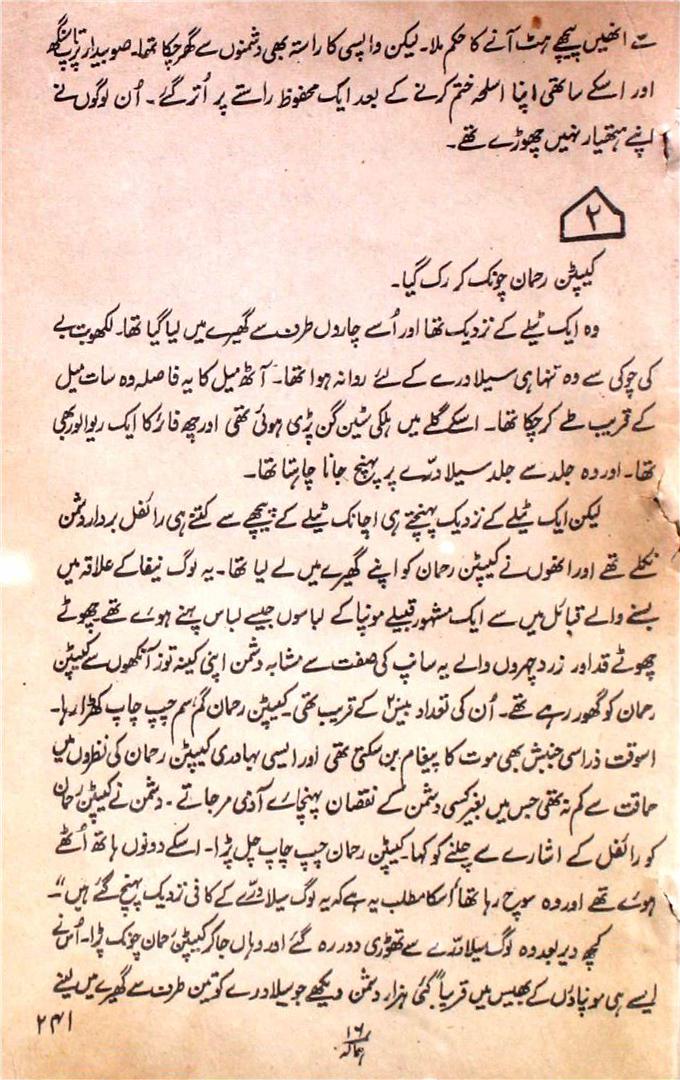 سے انھیں پیچھے ہٹ آنے کا حکم ملا۔ لیکن واپسی کا راستہ بھی دشمنوں سے گھر چکا تھا۔ صوبیدار ترپت سنگھ
اور اسکے ساتھی اپنا اسلحہ ختم کرنے کے بعد ایک محفوظ راستے پر اُتر گئے۔ اُن لوگوں نے
اپنے ہتھیار نہیں چھوڑے تھے۔
۲
کیپٹن رحمان چونک کر رک گیا۔
وہ ایک ٹیلے کے نزدیک تھا اور اُسے چاروں طرف سے گھیرے میں لیا گیا تھا۔ لکھویت بے
کی چوکی سے وہ تنہا ہی سیلا درے کے لئے روانہ ہوا تھا۔ آٹھ میل کا یہ فاصلہ وہ سات میل
کے قریب طے کر چکا تھا۔ اسکے گلے میں ہلکی سٹین گن پڑی ہوئی تھی اور چھ فائر کا ایک ریوالور بھی
تھا۔ اور وہ جلد سے جلد سیلا درّے پر پہنچ جانا چاہتا تھا۔
لیکن ایک ٹیلے کے نزدیک پہنچتے ہی اچانک ٹیلے کے پیچھے سے کتنے ہی رائفل بردار دشمن
نکلے تھے اور انھوں نے کیپٹن رحمان کو اپنے گھیرے میں لے لیا تھا۔ یہ لوگ نیفا کے علاقہ میں
بسنے والے قبائل میں سے ایک مشہور قبیلے مونپا کے لباسوں جیسے لباس پہنے ہوئے تھے چھوٹے
چھوٹے قد اور زرد چہروں والے یہ سانپ کی صفت سے مشابہ دشمن اپنی کینہ توز آنکھوں سے کیپٹن
رحمان کو گھور رہے تھے۔ اُن کی تعداد بیس کے قریب تھی۔ کیپٹن رحمان گم سم چپ چاپ کھڑا رہا۔
اسوقت ذرا سی جنبش بھی موت کا پیغام بن سکتی تھی اور ایسی بہادری کیپٹن رحمان کی نظروں میں
حماقت سے کم نہ تھی جس میں بغیر کسی دشمن کے نقصان پہنچائے آدمی مر جاتے۔ دشمن نے کیپٹن رحمان
کو رائفل کے اشارے سے چلنے کو کہا۔ کیپٹن رحمان چپ چاپ چل پڑا۔ اسکے دونوں ہاتھ اُٹھے
ہوئے تھے اور وہ سوچ رہا تھا "اسکا مطلب یہ ہے کہ یہ لوگ سیلا درّے کے کافی نزدیک پہنچ گئے ہیں"۔
کچھ دیر بعد وہ لوگ سیلا درّے سے تھوڑی دور رہ گئے اور وہاں جا کر کیپٹن رحمان چونک پڑا۔ اُس نے
ایسے ہی مونپاؤں کے بھیس میں قریباً کئی ہزار دشمن دیکھے جو سیلا درے کو تین طرف سے گھیرے میں لینے
۲۴۱
۱۶